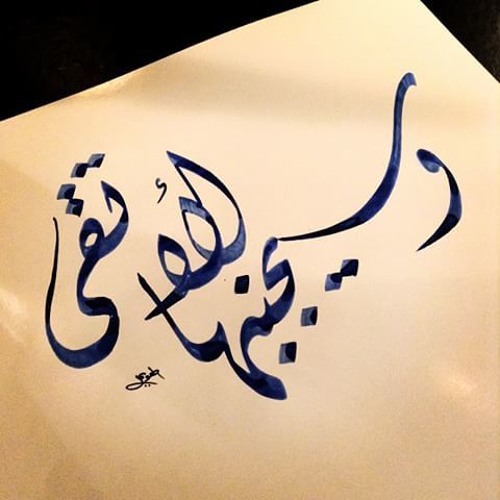 وسيجنبها الأتقى